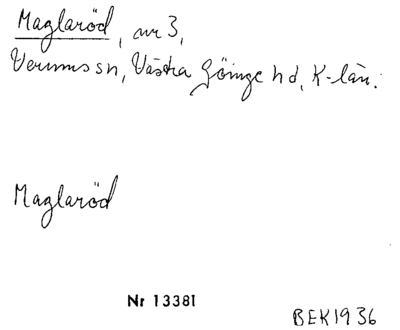 Maglaröd, nr 3,
Verums sn, Västra Göinge hd, K-län.
Maglaröd
Nr 13381
BEK1936